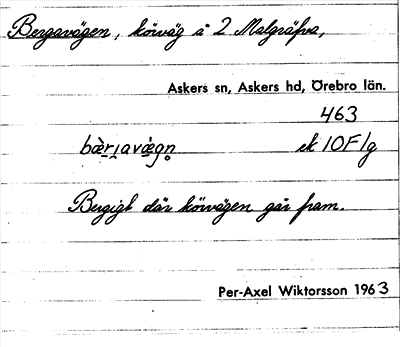 Bergavägen, körväg å 2 Malgräfva,
Askers sn, Askers hd, Örebro län.
463
bæ̀rjavæ̀gn̥ ek 10F/g
Bergigt där körvägen går fram.
Per-Axel Wiktorsson 1963